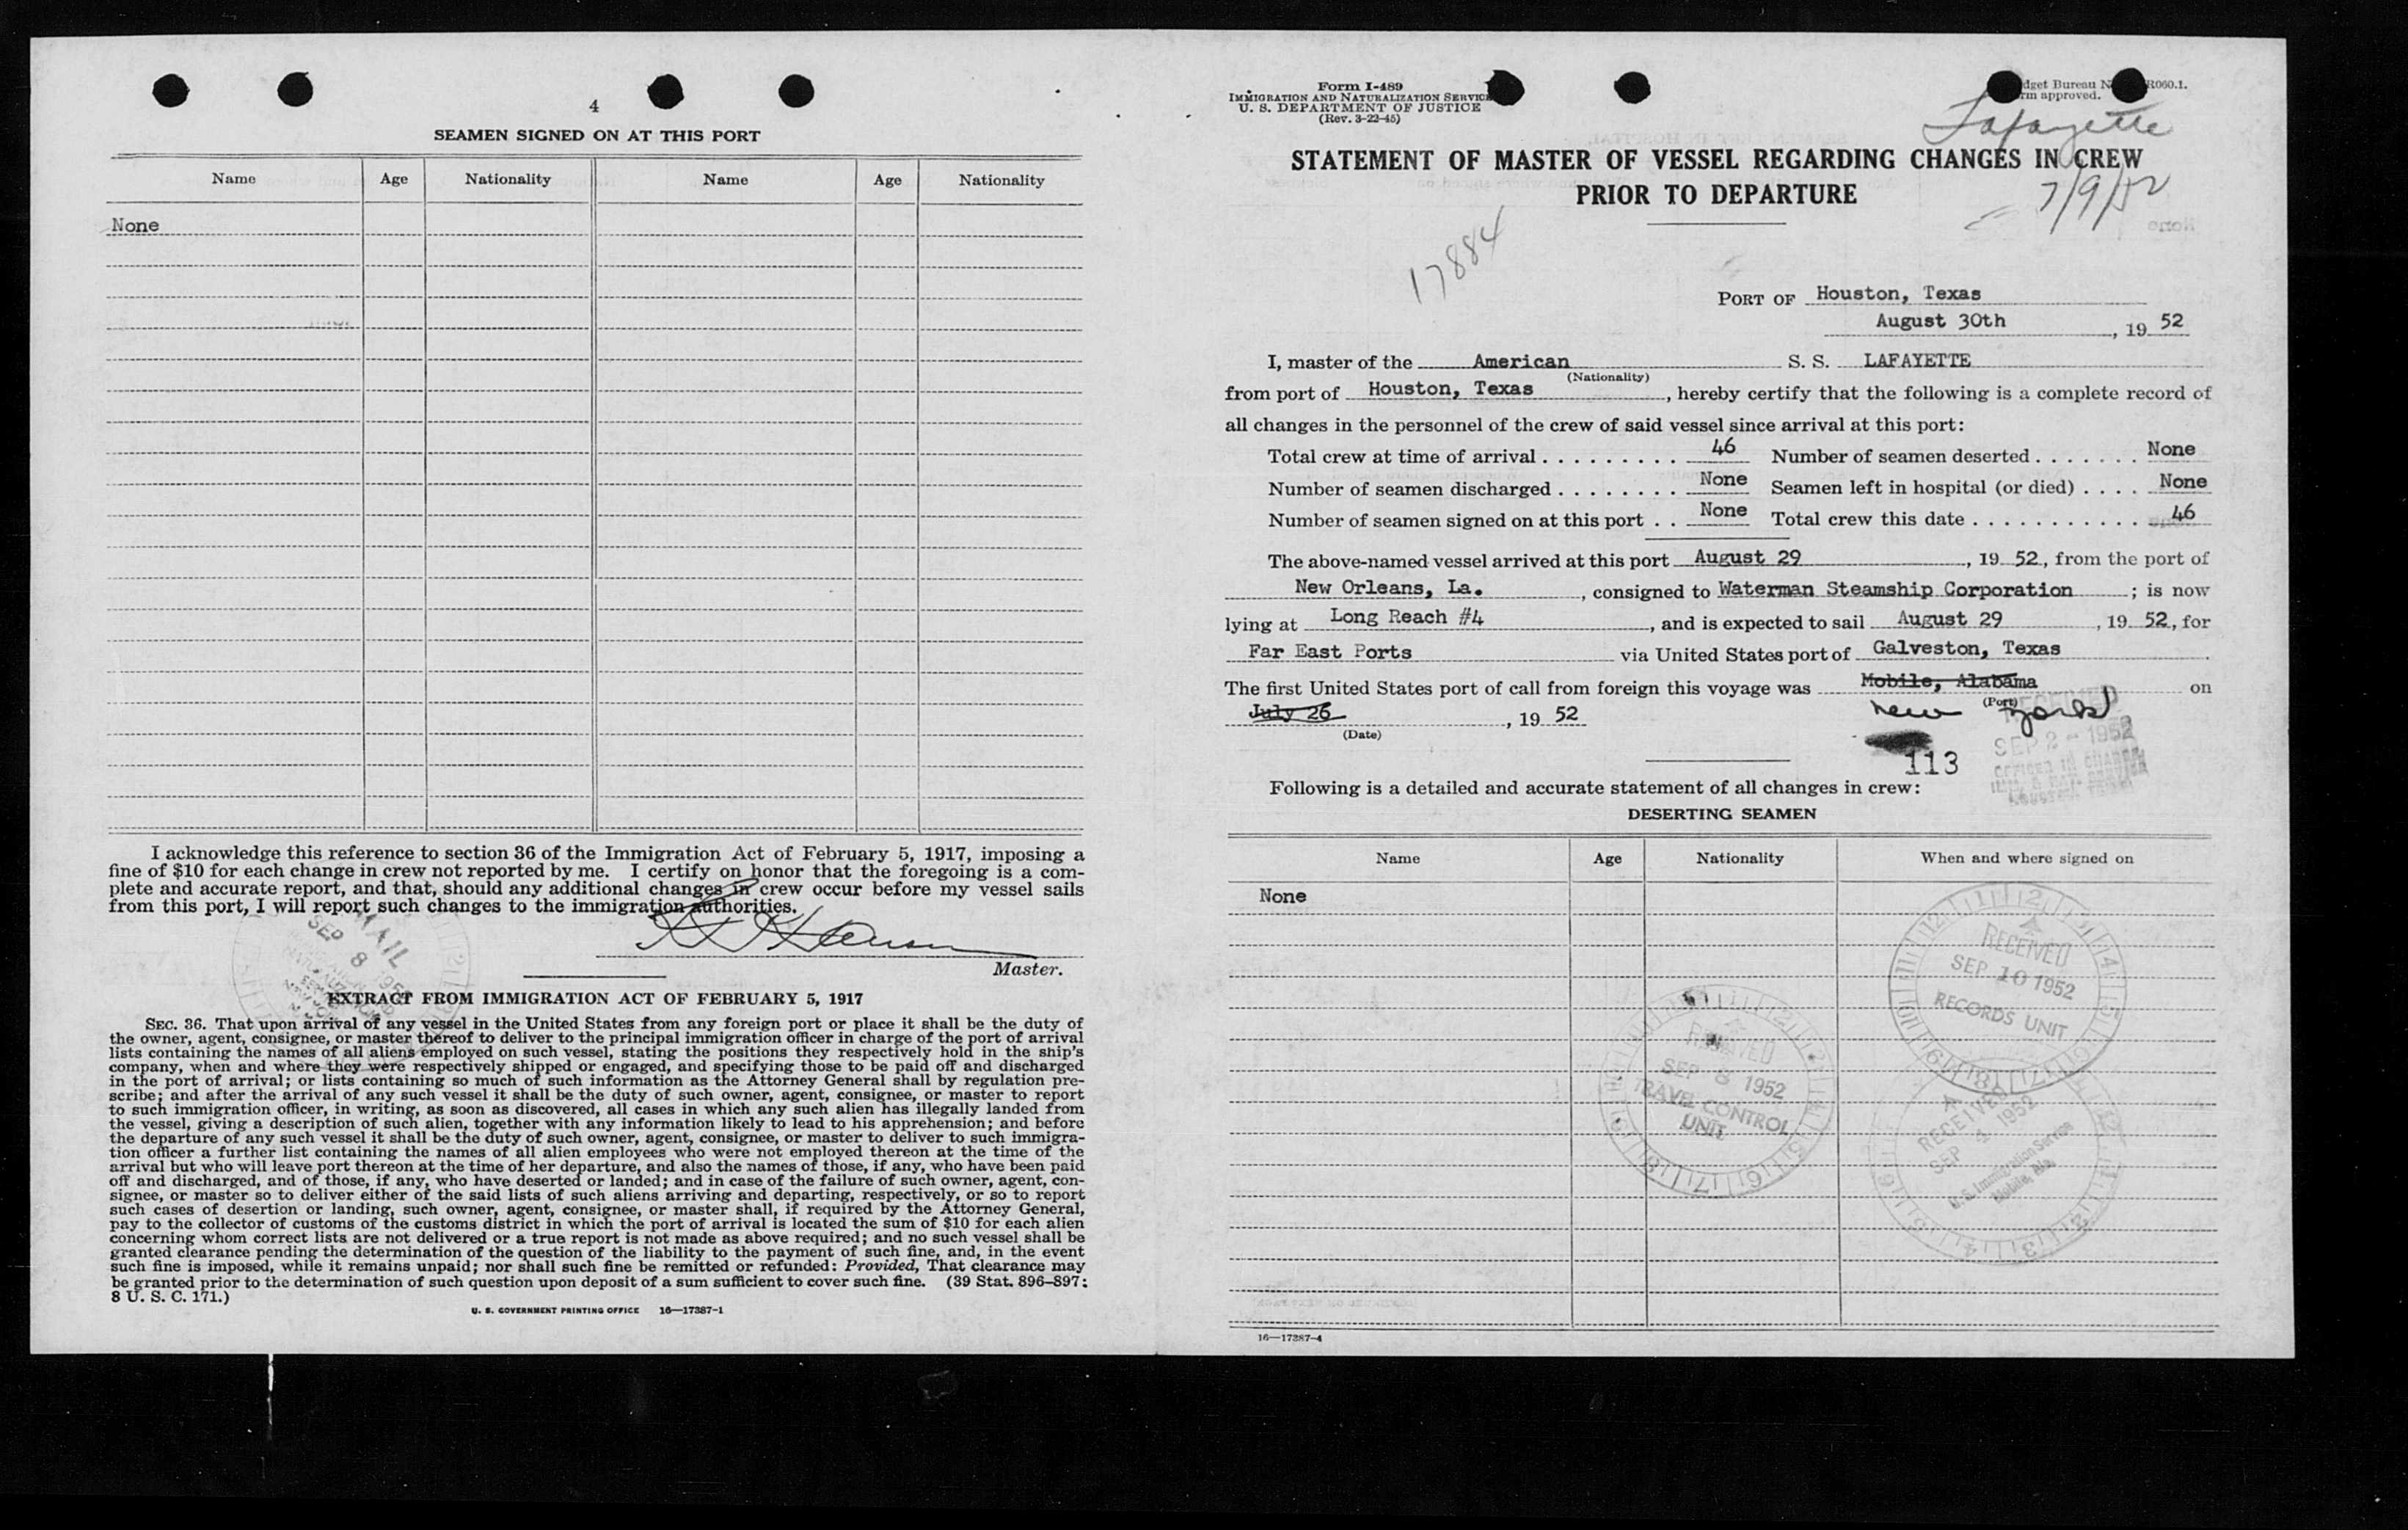 4
SEAMEN SIGNED ON AT THIS PORT
Name Age Nationality Name Age Nationality
None
I acknowledge this reference to section 36 of the Immigration Act of February 5, 1917, imposing a
fine of $10 for each change in crew not reported by me. I certify on honor that the foregoing is a com-
plete and accurate report, and that, should any additional changes in crew occur before my vessel sails
from this port, I will report such changes to the immigration authorities.
MAIL
SEP 8 1952
Master.
EXTRACT FROM IMMIGRATION ACT OF FEBRUARY 5, 1917
SEC. 36. That upon arrival of any vessel in the United States from any foreign port or place it shall be the duty of
the owner, agent, consignee, or master thereof to deliver to the principal immigration officer in charge of the port of arrival
lists containing the names of all aliens employed on such vessel, stating the positions they respectively hold in the ship's
company, when and where they were respectively shipped or engaged, and specifying those to be paid off and discharged
in the port of arrival; or lists containing so much of such information as the Attorney General shall by regulation pre-
scribe; and after the arrival of any such vessel it shall be the duty of such owner, agent, consignee, or master to report
to such immigration officer, in writing, as soon as discovered, all cases in which any such alien has illegally landed from
the vessel, giving a description of such alien, together with any information likely to lead to his apprehension; and before
the departure of any such vessel it shall be the duty of such owner, agent, consignee, or master to deliver to such immigra-
tion officer a further list containing the names of all alien employees who were not employed thereon at the time of the
arrival but who will leave port thereon at the time of her departure, and also the names of those, if any, who have been paid
off and discharged, and of those, if any, who have deserted or landed; and in case of the failure of such owner, agent, con-
signee, or master so to deliver either of the said lists of such aliens arriving and departing, respectively, or so to report
such cases of desertion or landing, such owner, agent, consignee, or master shall, if required by the Attorney General,
pay to the collector of customs of the customs district in which the port of arrival is located the sum of $10 for each alien
concerning whom correct lists are not delivered or a true report is not made as above required; and no such vessel shall be
granted clearance pending the determination of the question of the liability to the payment of such fine, and, in the event
such fine is imposed, while it remains unpaid; nor shall such fine be remitted or refunded: Provided, That clearance may
be granted prior to the determination of such question upon deposit of a sum sufficient to cover such fine. (39 Stat. 896–897;
8 U. S. C. 171.)
U. S. GOVERNMENT PRINTING OFFICE 16—17387-1
Form I-489
IMMIGRATION AND NATURALIZATION SERVICE
U. S. DEPARTMENT OF JUSTICE
(Rev. 3-22-45)
Bureau
approved.
Lafayette
STATEMENT OF MASTER OF VESSEL REGARDING CHANGES IN CREW
PRIOR TO DEPARTURE
7/9/52
17884
PORT OF Houston, Texas
August 30th, 19 52
I, master of the American S. S. LAFAYETTE
(Nationality)
from port of Houston, Texas, hereby certify that the following is a complete record of
all changes in the personnel of the crew of said vessel since arrival at this port:
Total crew at time of arrival . . . . . . . . . 46 Number of seamen deserted . . . . . . . None
Number of seamen discharged . . . . . . . . None Seamen left in hospital (or died) . . . . None
Number of seamen signed on at this port . . None Total crew this date . . . . . . . . . . . . 46
The above-named vessel arrived at this port August 29, 19 52, from the port of
New Orleans, La., consigned to Waterman Steamship Corporation; is now
lying at Long Reach #4, and is expected to sail August 29, 19 52, for
Far East Ports via United States port of Galveston, Texas
The first United States port of call from foreign this voyage was Mobile, Alabama on
July 26, 19 52 New York
(Port)
(Date)
SEP 2 - 1952
113
Following is a detailed and accurate statement of all changes in crew:
DESERTING SEAMEN
Name Age Nationality When and where signed on
None
RECEIVED
SEP 10 1952
RECORDS UNIT
RECEIVED
SEP 8 1952
TRAVEL CONTROL
UNIT
RECEIVED
SEP 1952
U. S. Immigration Service
Mobile, Ala.
16—17387-4